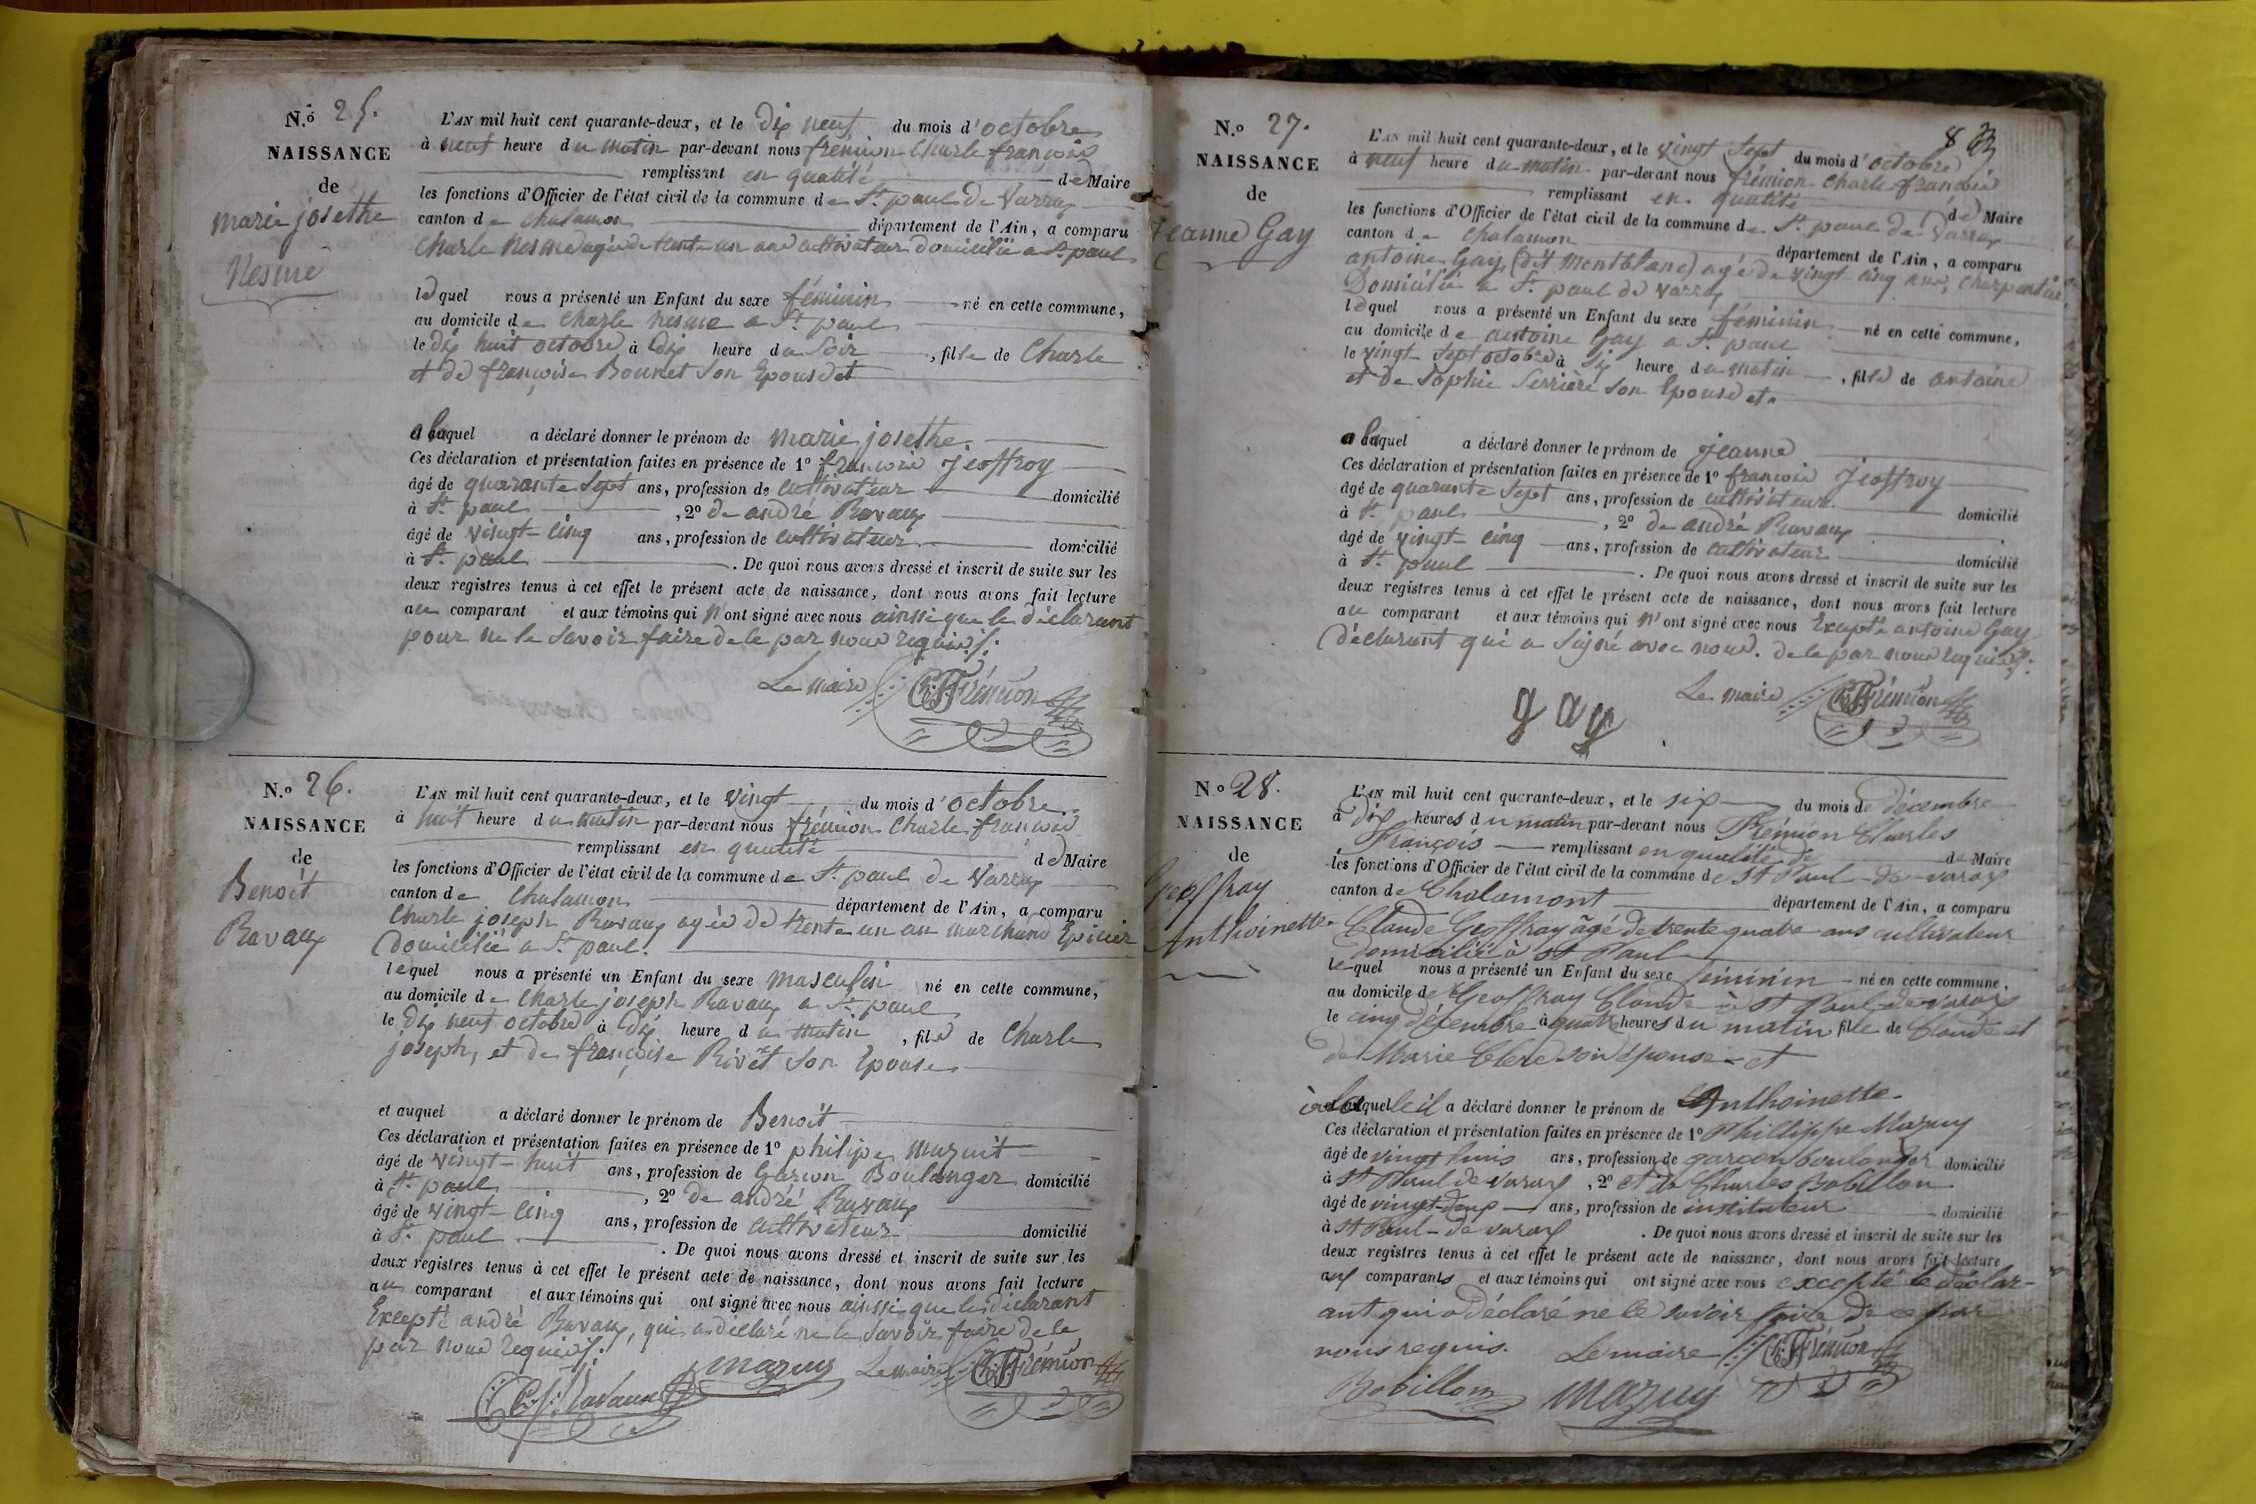 N.o 25.
NAISSANCE
de
marie josethe
Nesme
L'AN mil huit cent quarante-deux, et le dix neuf du mois d'octobre
à neuf heure du matin par-devant nous frémion Charle françois
remplissant en qualité de Maire
les fonctions d'Officier de l'état civil de la commune de St. paul de Varax
canton de Chalamon département de l'Ain, a comparu
Charle Nesme agé de trente un ans cultivateur domicilié a St. paul
lequel nous a présenté un Enfant du sexe féminin né en cette commune,
au domicile de Charle nesme a St. paul
le dix huit octobre à dix heure du Soir, fille de Charle
et de françoise Bounet Son Epouse et
a laquel a déclaré donner le prénom de marie josethe.
Ces déclaration et présentation faites en présence de 1o françois Jeoffroy
âgé de quarante Sept ans, profession de cultivateur domicilié
à St. paul, 2o de andré Ravaux
âgé de vingt-cinq ans, profession de cultivateur domicilié
à St. paul. De quoi nous avons dressé et inscrit de suite sur les
deux registres tenus à cet effet le présent acte de naissance, dont nous avons fait lecture
au comparant et aux témoins qui n'ont signé avec nous ainssi que le déclarant
pour ne le Savoir faire de le par nous requis.
Le maire Ch. F. Frémion
N.o 26.
NAISSANCE
de
Benoit
Ravaux
L'AN mil huit cent quarante-deux, et le Vingt du mois d'octobre
à huit heure du matin par-devant nous frémion Charle françois
remplissant en qualité de Maire
les fonctions d'Officier de l'état civil de la commune de St. paul de Varax
canton de Chalamon département de l'Ain, a comparu
Charle joseph Ravaux agée de trente un an marchand Epicier
Domicilié a St. paul.
lequel nous a présenté un Enfant du sexe masculin né en cette commune,
au domicile de Charle joseph Ravaux a St. paul
le dix neuf octobre à dix heure du matin, fils de Charle
joseph, et de françoise Rivet Son Epouse
et auquel a déclaré donner le prénom de Benoit
Ces déclaration et présentation faites en présence de 1o philipe mazuit
âgé de vingt-huit ans, profession de Garçon Boulanger domicilié
à St. paul, 2o de andré Ravaux
âgé de vingt-cinq ans, profession de cultivateur domicilié
à St. paul. De quoi nous avons dressé et inscrit de suite sur les
deux registres tenus à cet effet le présent acte de naissance, dont nous avons fait lecture
au comparant et aux témoins qui ont signé avec nous ainssi que le déclarant
Excepté andré Ravaux, qui a déclaré ne le Savoir faire de le
par nous requis.
mazuy Le maire Ch. F. Frémion
C. J. Ravaux
N.o 27.
NAISSANCE
de
Jeanne Gay
83
L'AN mil huit cent quarante-deux, et le vingt Sept du mois d'octobre
à neuf heure du matin par-devant nous frémion Charle françois
remplissant en qualité de Maire
les fonctions d'Officier de l'état civil de la commune de St. paul de Varax
canton de Chalamon département de l'Ain, a comparu
antoine Gay (dit Montblanc) agé de vingt cinq ans, charpentier
Domicilié a St. paul de varax
lequel nous a présenté un Enfant du sexe féminin né en cette commune,
au domicile de antoine Gay a St. paul
le vingt Sept octobre à Six heure du matin, fille de antoine
et de Sophie Serrière Son Epouse et.
a laquel a déclaré donner le prénom de Jeanne
Ces déclaration et présentation faites en présence de 1o françois Jeoffroy
âgé de quarante Sept ans, profession de cultivateur domicilié
à St. paul, 2o de andré Ravaux
âgé de vingt-cinq ans, profession de cultivateur domicilié
à St. paul. De quoi nous avons dressé et inscrit de suite sur les
deux registres tenus à cet effet le présent acte de naissance, dont nous avons fait lecture
au comparant et aux témoins qui n'ont signé avec nous Excepté antoine Gay
Déclarant qui a Signé avec nous. de le par nous requis.
Le maire Ch. F. Frémion
gay
No 28.
NAISSANCE
de
Geoffray
Anthoinette
L'AN mil huit cent quarante-deux, et le six du mois de décembre
à dix heures du matin par-devant nous Frémion Charles
François remplissant en qualité de de Maire
les fonctions d'Officier de l'état civil de la commune de St Paul-de-varax
canton de Chalamont département de l'Ain, a comparu
Claude Geoffray âgé de trente quatre ans cultivateur
domicilié à St Paul
lequel nous a présenté un Enfant du sexe féminin né en cette commune,
au domicile de Geoffray Claude à St Paul-de-varax
le cinq décembre à quatre heures du matin fille de Claude et
de Marie Clerc son épouse et
à laquel le il a déclaré donner le prénom de Anthoinette
Ces déclaration et présentation faites en présence de 1o Phillippe Mazuy
âgé de vingt huit ans, profession de garçon boulanger domicilié
à St Paul de varax, 2o et de Charles Bobillon
âgé de vingt-deux ans, profession de instituteur domicilié
à St Paul-de-varax. De quoi nous avons dressé et inscrit de suite sur les
deux registres tenus à cet effet le présent acte de naissance, dont nous avons fait lecture
aux comparants et aux témoins qui ont signé avec nous excepté le déclar-
ant qui a déclaré ne le savoir faire de ce par
nous requis. Le maire Ch. F. Frémion
Bobillon Mazuy